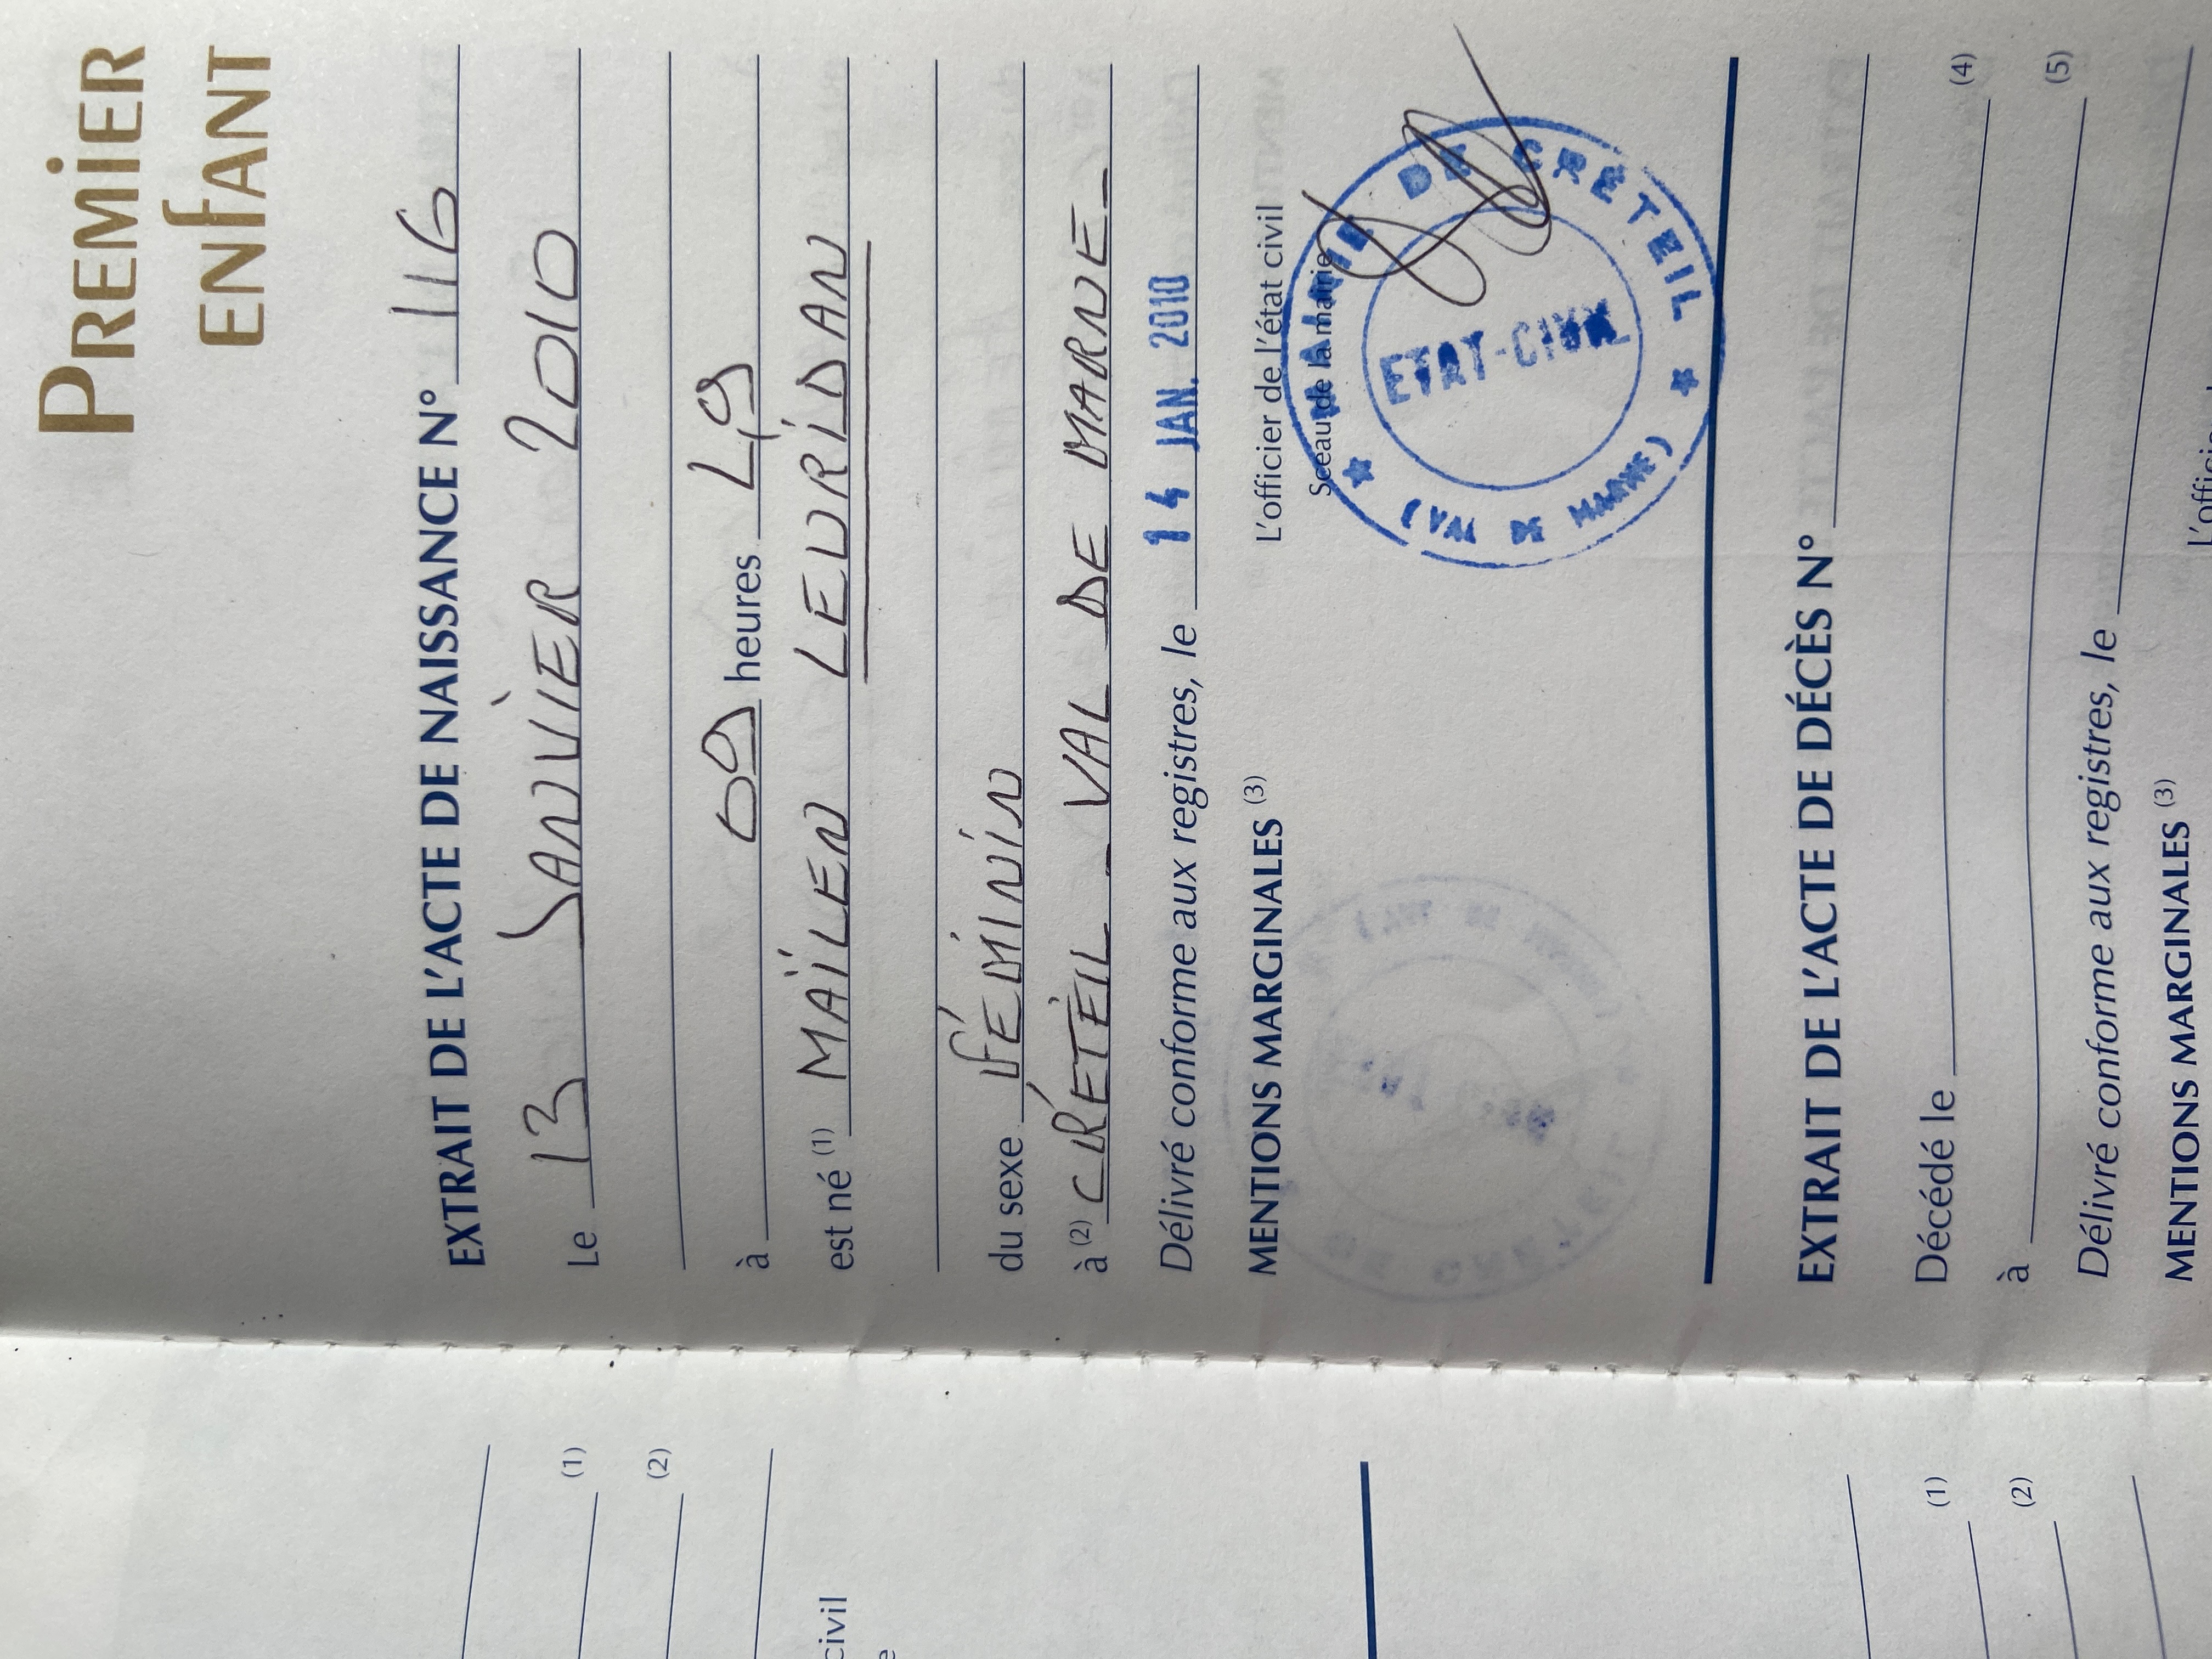 PREMIER
ENFANT
EXTRAIT DE L'ACTE DE NAISSANCE N° 116
Le 13 JANVIER 2010
à 09 heures 49
est né (1) MAÏLEN LEURIDAN
du sexe FÉMININ
à (2) CRÉTEIL - VAL DE MARNE -
Délivré conforme aux registres, le 14 JAN. 2010
MENTIONS MARGINALES (3)
L'officier de l'état civil
Sceau de la mairie
MAIRIE DE CRÉTEIL
ETAT-CIVIL
(VAL DE MARNE)
EXTRAIT DE L'ACTE DE DÉCÈS N°
Décédé le (4)
à (5)
Délivré conforme aux registres, le
MENTIONS MARGINALES (3)
(1)
(2)
civil
(1)
(2)